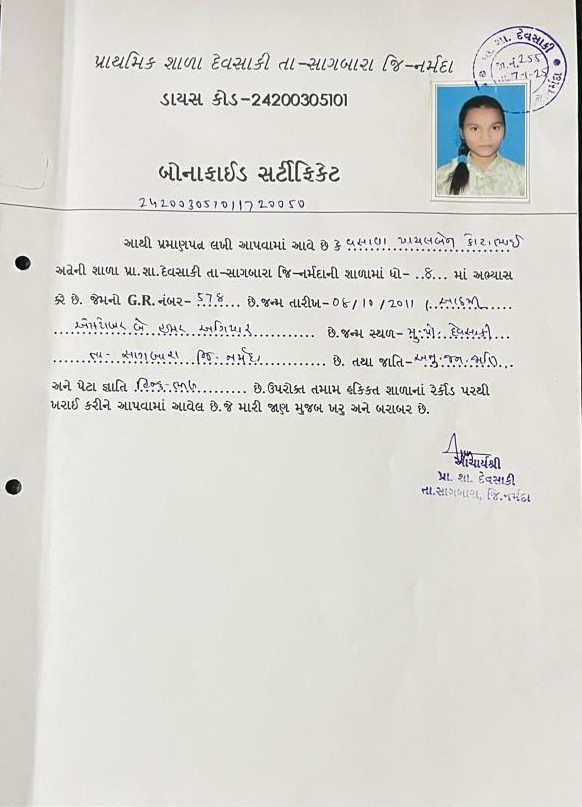 પ્રા. શા. દેવસાકી
જા.નં.255
તા.7-1-25
પ્રાથમિક શાળા દેવસાકી તા-સાગબારા જિ-નર્મદા
ડાયસ કોડ-24200305101
બોનાફાઈડ સર્ટીફિકેટ
242003051011720050
આથી પ્રમાણપત્ર લખી આપવામાં આવે છે કે વસાવા પાયલબેન
અત્રેની શાળા પ્રા.શા.દેવસાકી તા-સાગબારા જિ-નર્મદાની શાળામાં ધો- ..8... માં અભ્યાસ
કરે છે. જેમનો G.R. નંબર- 578 છે.જન્મ તારીખ-08/10/2011 (..આઠમી
ઓક્ટોબર બે હજાર અગિયાર છે.જન્મ સ્થળ- મુ.પો. દેવસાકી
તા- સાગબારા જિ- નર્મદા છે. તથા જાતિ-અનુ.જન.જાતિ
અને પેટા જ્ઞાતિ હિન્દુ-ભીલ છે.ઉપરોક્ત તમામ હકિકત શાળાનાં રેકૉડ પરથી
ખરાઈ કરીને આપવામાં આવેલ છે.જે મારી જાણ મુજબ ખરુ અને બરાબર છે.
આચાર્યશ્રી
પ્રા. શા. દેવસાકી
તા.સાગબારા, જિ.નર્મદા